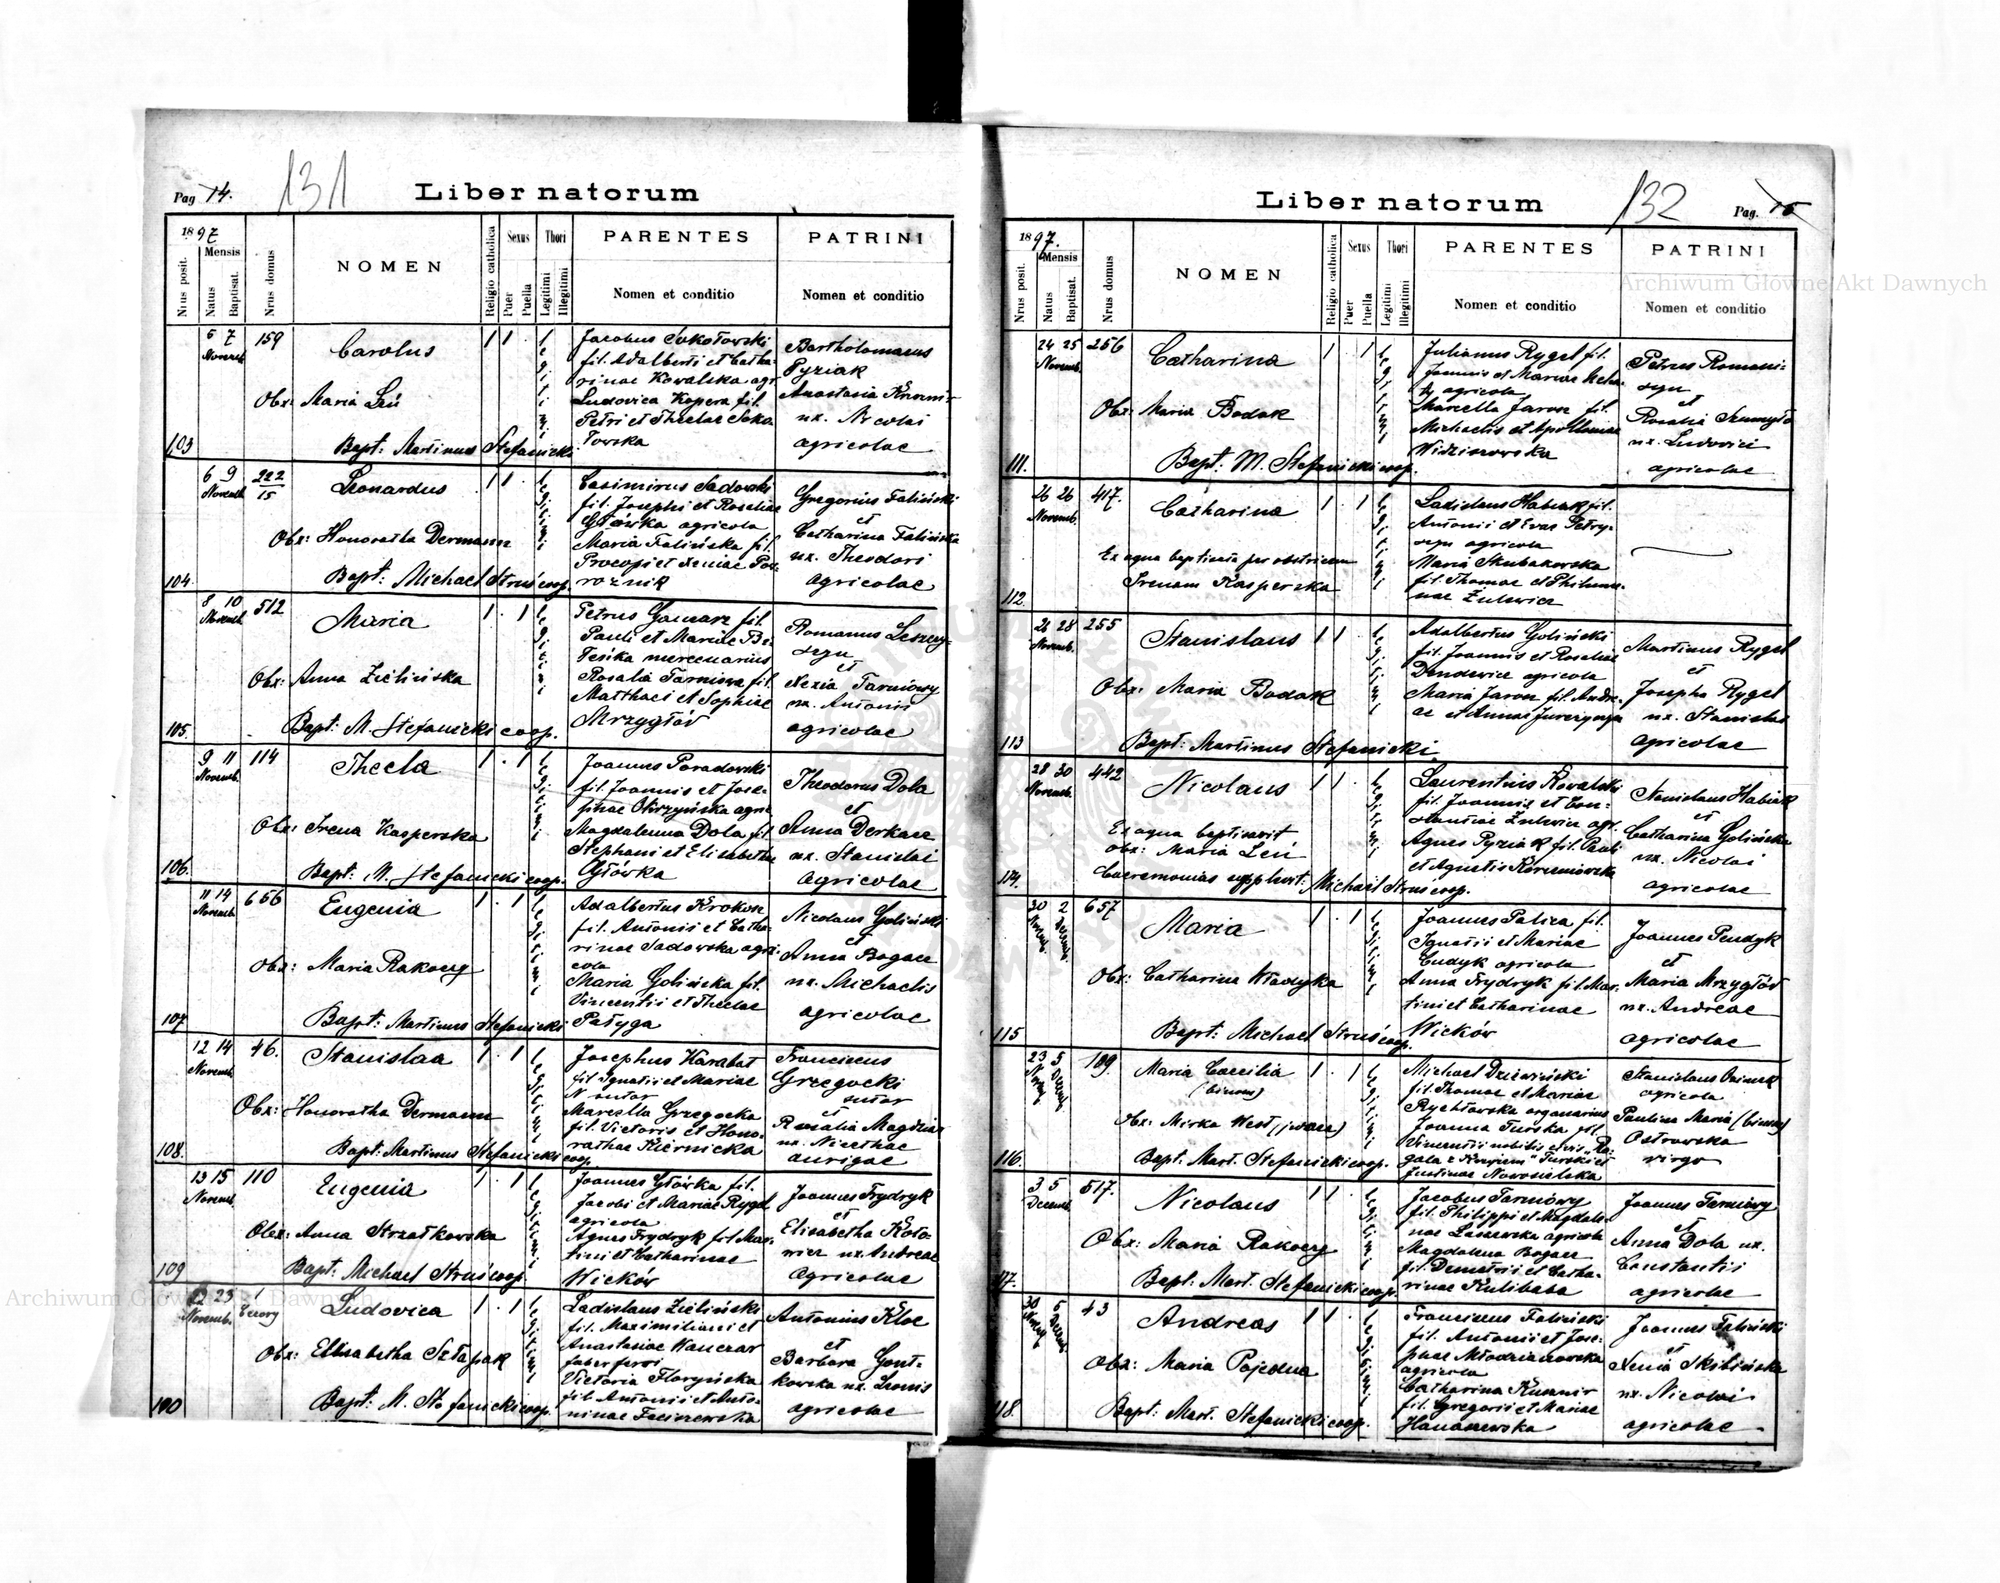 Pag 14.
131
Liber natorum
1897
Nrus posit.
Mensis
Natus
Baptisat.
Nrus domus
NOMEN
Religio catholica
Sexus
Puer
Puella
Thori
Legitimi
Illegitimi
PARENTES
Nomen et conditio
PATRINI
Nomen et conditio
103
6 7
Novemb.
159
Carolus
Obx: Maria Leń
Bapt: Martinus Stefanicki
Jacobus Sokołowski
fil. Adalberti et Catha-
rinae Kowalska agr.
Ludovica Kopera fil.
Petri et Theclae Soko-
łowska
Bartholomaeus
Pyziak
Anastasia
ux. Nicolai
agricolae
104.
6 9
Novemb.
222
15
Leonardus
Obx: Honoratha Dermann
Bapt: Michael Struś coop.
Casimirus Sadowski
fil. Josephi et Rosaliae
Główka agricola
Maria Falińska fil.
Procopi et Xeniae Po-
roznik
Gregorius Faliński
et
Catharina Falińska
ux. Theodori
agricolae
105.
8 10
Novemb.
512
Maria
Obx: Anna Zielińska
Bapt: M. Stefanicki coop.
Petrus Gancarz fil.
Pauli et Mariae
mercenarius
Rosalia Tarniowa fil.
Matthaei et Sophiae
Mrzygłód
Romanus
et
Xenia Tarniowy
ux. Antonii
agricolae
106.
9 11
Novemb.
114
Thecla
Obx: Irena Kasperska
Bapt: M. Stefanicki coop.
Joannes Poradowski
fil. Joannis et Jose-
phae
Magdalena Dola fil.
Stephani et Elisabethae
Główka
Theodorus Dola
et
Anna Derkacz
ux. Stanislai
agricolae
107.
11 14
Novemb.
656
Eugenia
Obx: Maria Rakoczy
Bapt: Martinus Stefanicki
Adalbertus Krokosz
fil. Antonii et Catha-
rinae Sadowska agri-
cola
Maria Golińska fil.
Vincentii et Theclae
Pałyga
Nicolaus Goliński
et
Anna Bogacz
ux. Michaelis
agricolae
108.
12 14
Novemb.
46.
Stanislaa
Obx: Honoratha Dermann
Bapt: Martinus Stefanicki coop.
Josephus Karabat
fil. Ignatii et Mariae
N sutor
Marcella Grzegocka
fil. Victoris et Hono-
rathae Kiernicka
Franciscus
Grzegocki
sutor
et
Rosalia
ux. Nicethae
aurigae
109
13 15
Novemb.
110
Eugenia
Obx: Anna Strzałkowska
Bapt: Michael Struś coop.
Joannes Główka fil.
Jacobi et Mariae Rygel
agricola
Agnes Frydryk fil. Mar-
tini et Catharinae
Wicków
Joannes Frydryk
et
Elisabetha Koło-
wicz ux. Andreae
agricolae
23
Novemb.
1
Ludovica
Obx: Elisabetha Szłapak
Bapt: M. Stefanicki coop.
Ladislaus Zieliński
fil. Maximiliani et
Anastasiae Kanczar
faber ferri
Victoria Floryńska
fil. Antonii et Anto-
ninae
Antonius Kloc
et
Barbara Gont-
kowska ux. Leonis
agricolae
Liber natorum
132
Pag. 15
1897.
Nrus posit.
Mensis
Natus
Baptisat.
Nrus domus
NOMEN
Religio catholica
Sexus
Puer
Puella
Thori
Legitimi
Illegitimi
PARENTES
Nomen et conditio
PATRINI
Nomen et conditio
111.
24 25
Novemb.
256
Catharina
Obx: Maria Bodak
Bapt: M. Stefanicki coop.
Julianus Rygel fil.
Joannis et Mariae
agricola
Marcella Jarosz fil.
Michaelis et Apolloniae
Widziszowska
Petrus Romani-
szyn
et
Rosalia
ux. Ludovici
agricolae
112.
26 26
Novemb.
417.
Catharina
Ex aqua baptisata per obstetricem
Irenam Kasperska
Ladislaus Habiak fil.
Antonii et Evae Petry-
szyn agricola
Maria Skubakowska
fil. Thomae et Philome-
nae Zulewicz
113
26 28
Novemb.
255
Stanislaus
Obx: Maria Bodak
Bapt: Martinus Stefanicki
Adalbertus Goliński
fil. Joannis et Rosaliae
agricola
Maria Jarosz fil. Andre-
ae et Annae
Martinus Rygel
et
Josepha Rygel
ux. Stanislai
agricolae
114.
28 30
Novemb.
442
Nicolaus
Ex aqua baptisavit
Obx: Maria Leń
Caeremonias supplevit: Michael Struś coop.
Laurentius Kowalski
fil. Joannis et Con-
stantiae Zulewicz agr.
Agnes Pyziak fil. Pauli
et Agnetis
Stanislaus Habiak
et
Catharina Golińska
ux. Nicolai
agricolae
115
30 2
657
Maria
Obx: Catharina Władyka
Bapt: Michael Struś coop.
Joannes Palica fil.
Ignatii et Mariae
Cudyk agricola
Anna Frydryk fil. Mar-
tini et Catharinae
Wicków
Joannes Pendyk
et
Maria Mrzygłód
ux. Andreae
agricolae
116.
23 5
189.
Maria Caecilia
(binom)
Obx: Mirka West (judaea)
Bapt: Mart. Stefanicki coop.
Michael
fil. Thomae et Mariae
Rychłowska organarius
Joanna Turska fil.
Vincentii nobilis
Turski et
Justinae Nowosielska
Stanislaus
agricola
Paulina Maria (binom)
Ostrowska
virgo
117.
3 5
Decemb.
517.
Nicolaus
Obx: Maria Rakoczy
Bapt: Mart. Stefanicki coop.
Jacobus Tarniowy
fil. Philippi et Magdale-
nae agricola
Magdalena Bogacz
fil. Demetrii et Catha-
rinae Kulibaba
Joannes Tarniowy
et
Anna Dola ux.
Constantii
agricolae
118.
30 6
43
Andreas
Obx: Maria Pojedna
Bapt: Mart. Stefanicki coop.
Franciscus Faliński
fil. Antonii et Jose-
phae Młodzianowska
agricola
Catharina Kusznir
fil. Gregorii et Mariae
Hanaszewska
Joannes Faliński
et
Xenia Skibińska
ux. Nicolai
agricolae
Archiwum Główne Akt Dawnych
Archiwum Główne Akt Dawnych